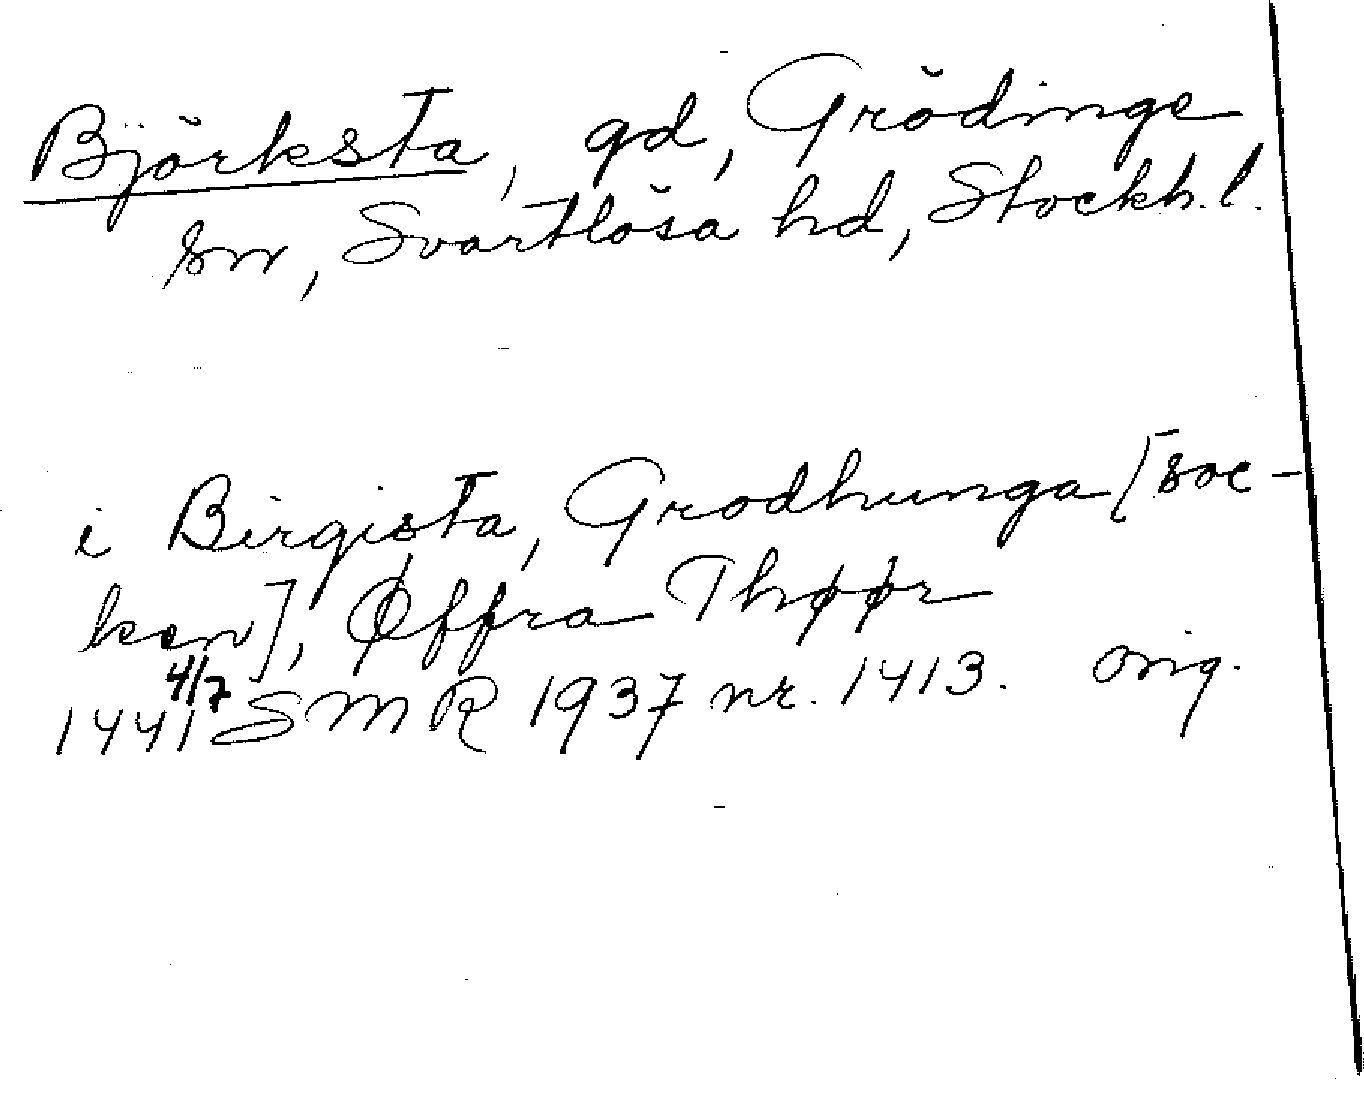 Björksta, gd, Grödinge
sn, Svartlösa hd, Stockh. l.
i Birgista, Grodhunga [soc-
ken], Øffra Thøør
1441 4/7 SMR 1937 nr. 1413. orig.